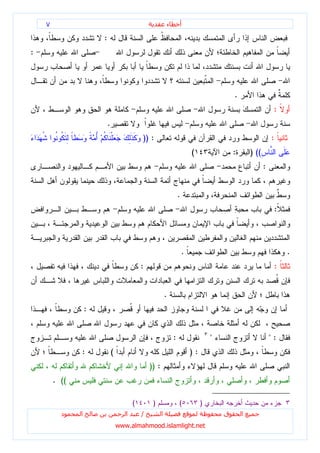 ٧ أخطاء عقدية
فبعض الناس إذا رأى المتمسك بدينه، المحافظَ على السنة قال له : لا تشدد وكن وسطاً، وهذا
أيضاً من المفاهيم الخاطئة؛ لأن معنى ذلك أنك تقول لرسول الله -صلى الله عليه وسلم- :
يا رسول الله أنت بسنتك متشدد، لما ذا لم تكن وسطاً يا أبا بكر أويا عمر أو يا أصحاب رسول
الله- صلى الله عليه وسلم- المتَّبعين لسنته ؟ لا تشددوا وكونوا وسطاً، وهنا لا بد من أن تقـــال
كلمةً في هذا الأمر .
أولاً : أن التمسك بسنة رسول الله- صلى الله عليه وسلم- كاملة هو الحق وهو الوســط ، لأن
سنة رسول الله- صلى الله عليه وسلم- ليس فيها غلوا ً ولا تقصير.
ثانياً : إن الوسط ورد في القرآن في قوله تعالى : (( وَكَذَلِكَ جَعَلْنَاكُمْ أُمَّةً وَسَطاً لِتَكُونُوا شُهَدَاءَ
عَلَى النَّاسِ)) (البقرة: من الآية١٤٣)
والمعنى : أن أتباع محمد- صلى الله عليه وسلم- هم وسط بين الأمـــم كـــاليهود والنصـــارى
وغيرهم ، كما ورد الوسط أيضاً في منهاج أئمة السنة والجماعة، وذلك حينما يقولون أهل السنة
وسطٌ بين الطوائف المنحرفة، والمبتدعة .
فمثلاً: في باب محبة أصحاب رسول الله- صلى الله عليه وسلم- هم وســـط بـــين الـــروافض
والنواصب ، وأيضاً في باب الإيمان ومسائل الأحكام هم وسط بين الوعيدية والمرجئـــة ، بـــين
المتشددين منهم الغالين والمفرطين المقصرين ، وهم وسط في باب القدر بين القدرية والجبريـــة
. وهكذا فهم وسط بين الطوائف جميعاً .
ثالثاً : أما ما يرد عند عامة الناس ونحوهم من قولهم : كن وسطاً في دينك ، فهذا فيه تفصيل ،
فإن قُصد به ترك السنن وترك التزامها في العبادات والمعاملات واللباس غيرها ، فلا شـــك أن
هذا باطل ؛ لأن الحق إنما هو الالتزام بالسنة .
أما إن وجّه إلى من غلا في ا لسنة وجاوز الحد فيها أو قُصر ، وقيل له : كن وسطاً ، فهـــذا
صحيح ، لكن له أمثلة خاصة ، مثل ذلك الذي كان في عهد رسول الله صلى الله عليه وسلم ،
فقال : " أنا لا أتزوج النساء " ٣ نقول له : تزوج ، فإن الرسول صلى الله عليه وســـلم تـــزوج
فكن وسطاً ، ومثل ذلك الذي قال : ( أقوم الليل كله ولا أنام أبداً ) نقول له : كن وســـطاً ؛ لأن
النبي صلى الله عليه وسلم قال لهؤلاء وأمثالهم : (( أما والله إني لأخشاكم لله وأتقاكم له ، لكني
أصوم وأفطر ، وأصلي ، وأرقد ، وأتزوج النساء فمن رغب عن سنتي فليس مني )) .
٣ جزء من حديث أخرجه البخاري ( ٥٠٦٣) ، ومسلم ( ١٤٠١)
جميع الحقوق محفوظة لموقع فضيلة الشيخ / عبد الرحمن بن صالح المحمود
www.almahmood.islamlight.net